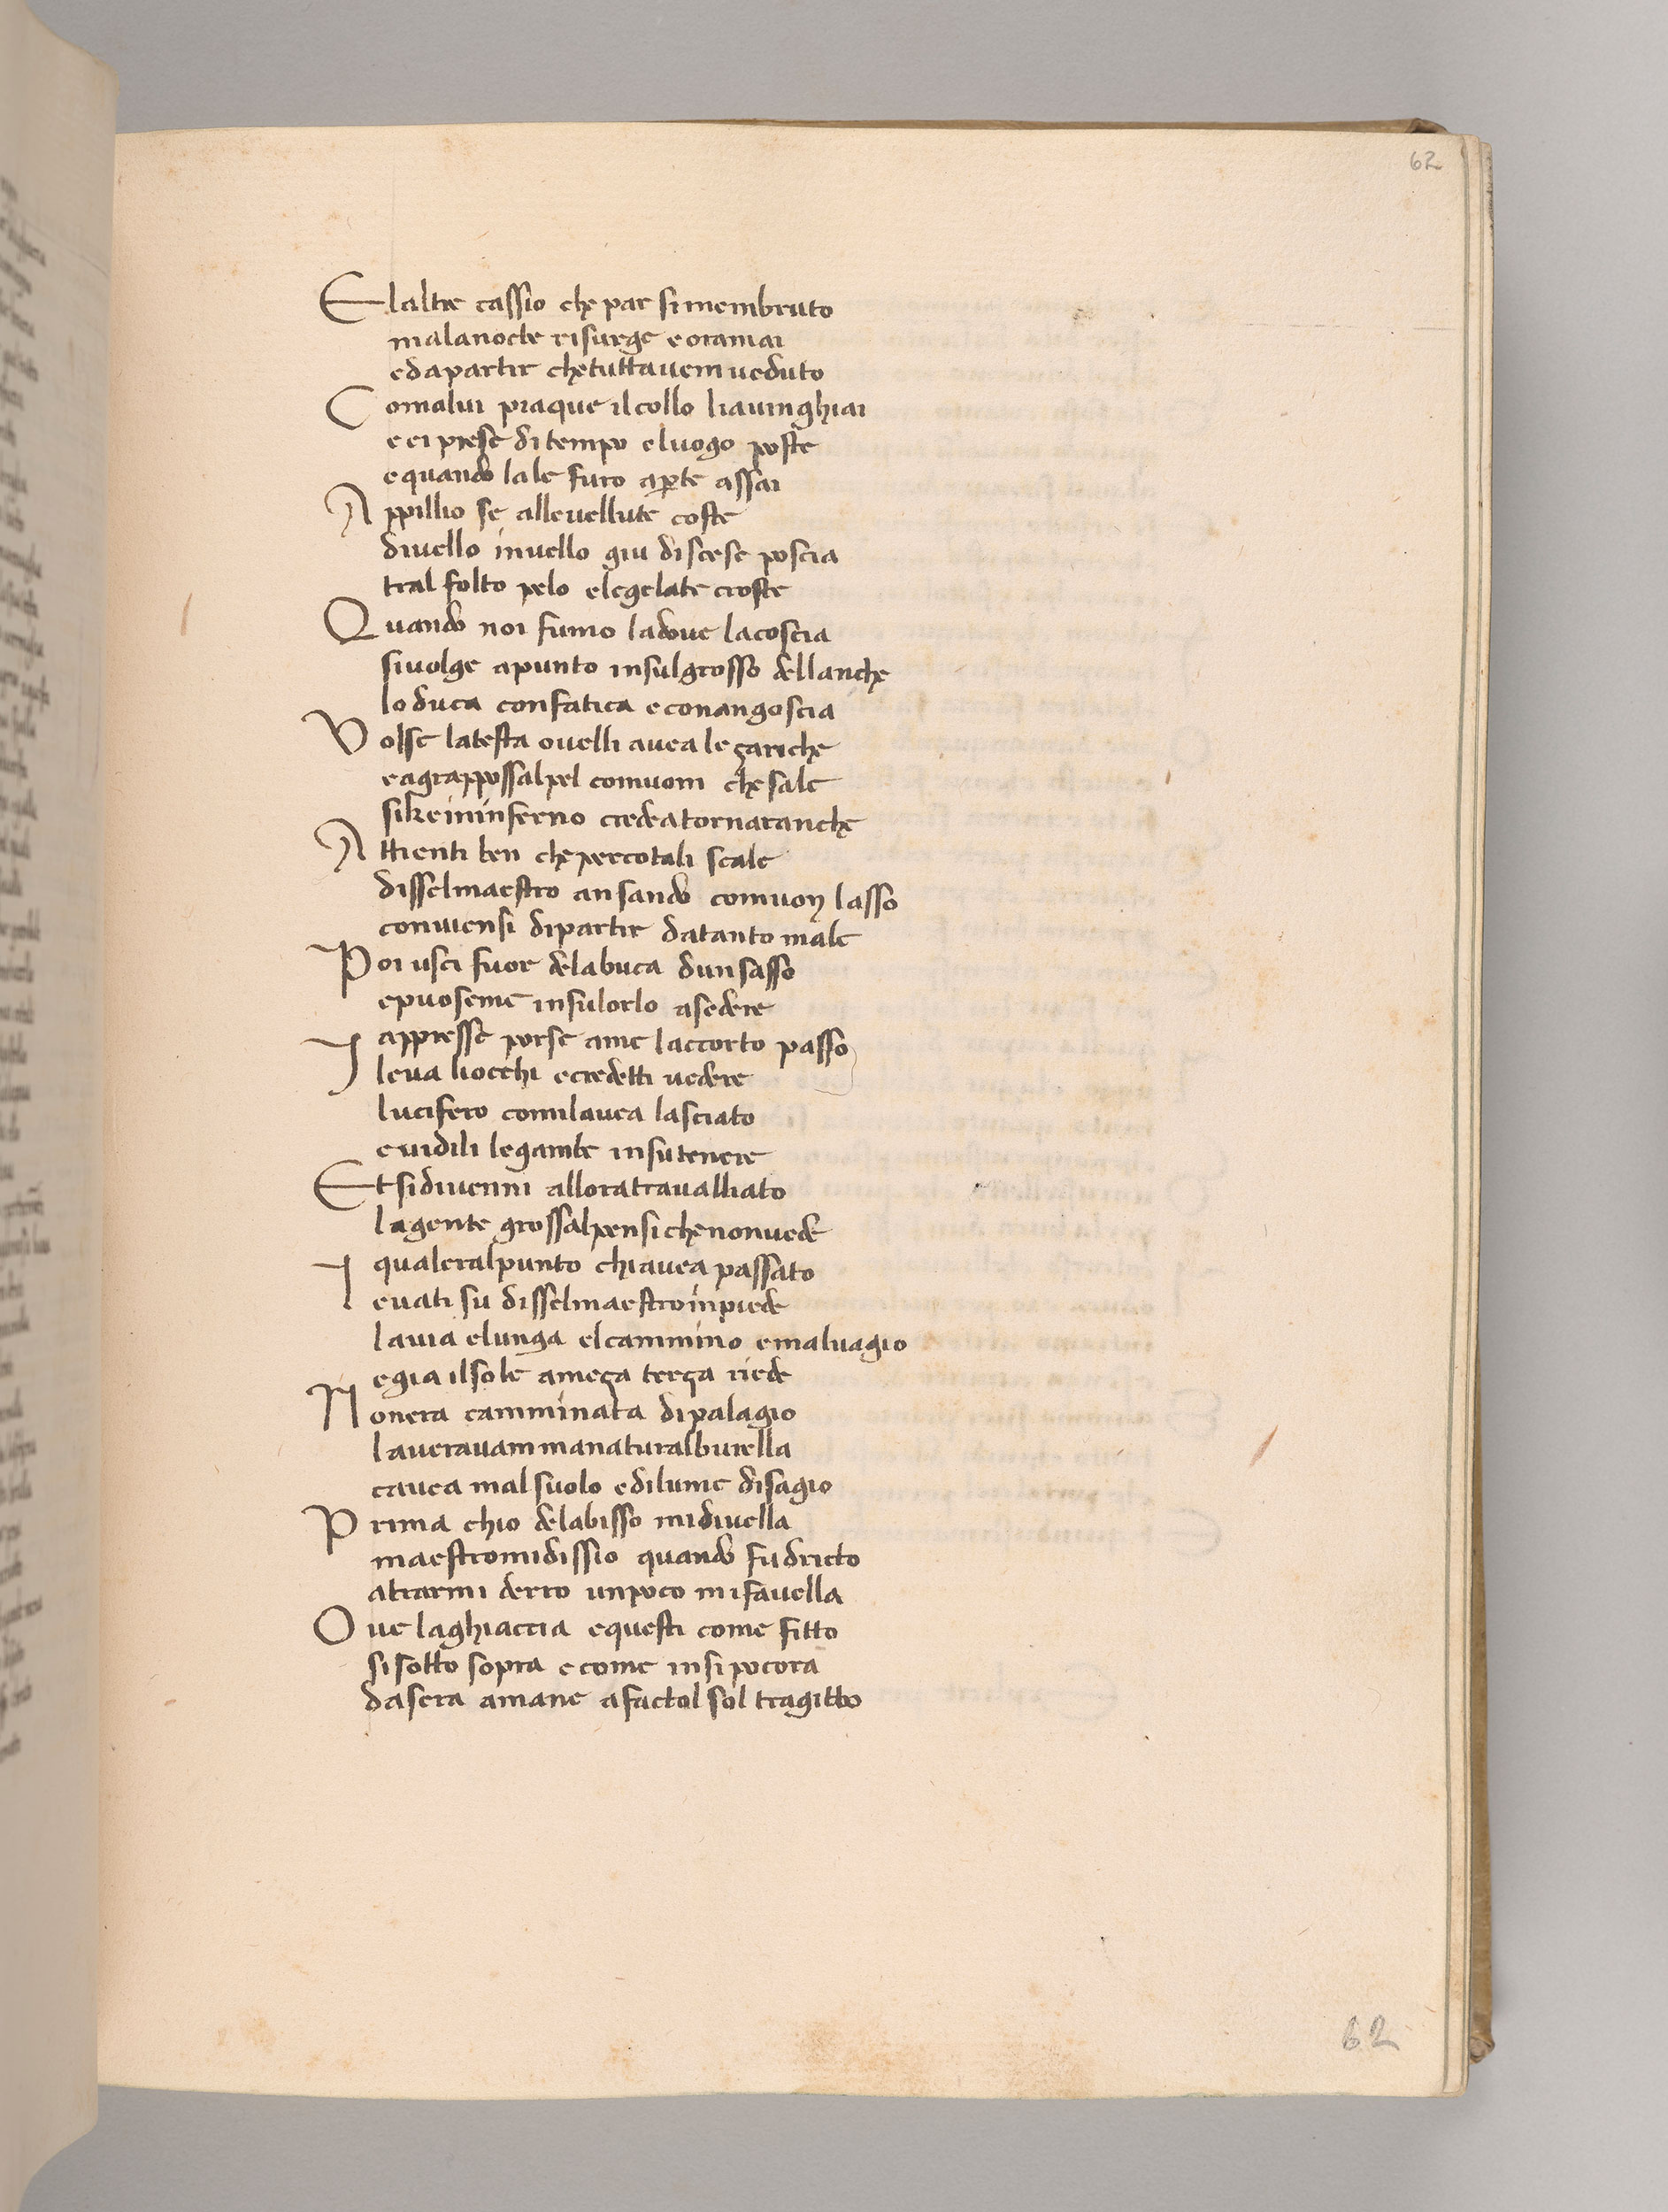 62
Elaltre cassio che par simembruto
malanocte risurge eoramai
edapartir chetuttavem veduto
Comalui piaque ilcollo liavinghiai
eei prese ditempo eluogo poste
equando lale furo aperte assai
Appillio se allevellute coste
divello invello giu discese poscia
tralfolto pelo elegelate croste
Quando noi fumo ladove lacoscia
sivolge apunto insulgrosso dellanche
loduca confatica econangoscia
Volse latesta ovelli avea legançhe
eagrappossalpel comuom che sale
sikeininferno credeatornaranche
Attienti ben chepercotali scale
disselmaestro ansando comuon lasso
conviensi dipartir datanto male
Poi usci fuor delabuca dunsasso
epuoseme insulorlo asedere
appresse porse ame laccorto passo
Ileva liocchi ecredetti vedere
lucifero comilavea lasciato
evidili legambe insutenere
Etsidivenni alloratravalliato
lagente grossalpensichenonvede
qualeralpunto chiavea passato
Levati su disselmaestroinpiede
lavia elunga elcammino emalvagio
egia ilsole ameça terça riede
Nonera camminata dipalagio
laveravammanaturalburella
cavea malsuolo edilume disagio
Prima chio delabisso midivella
maestromidissio quando fudricto
atrarmi derro unpoco mifavella
Ove laghiaccia equesti come fitto
sisotto sopra ecome insipocora
dasera amane afactol sol tragitto
62